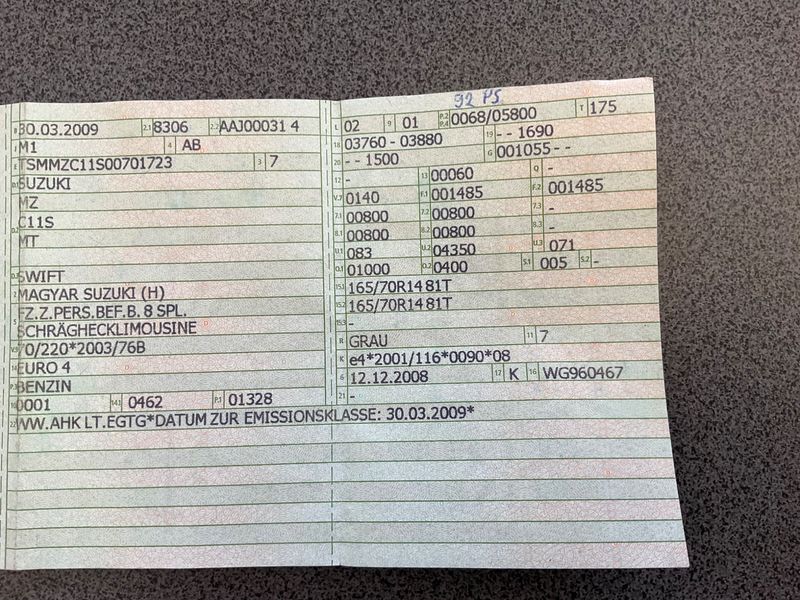 92 PS
B 30.03.2009 2.1 8306 2.2 AAJ00031 4
J M1 4 AB
E TSMMZC11S00701723 3 7
D.1 SUZUKI
MZ
D.2 C11S
MT
D.3 SWIFT
2 MAGYAR SUZUKI (H)
5 FZ.Z.PERS.BEF.B. 8 SPL.
SCHRÄGHECKLIMOUSINE
V.9 70/220*2003/76B
14 EURO 4
P.3 BENZIN
10 0001 14.1 0462 P.1 01328
22 WW.AHK LT.EGTG*DATUM ZUR EMISSIONSKLASSE: 30.03.2009*
L 02 9 01 P.2 P.4 0068/05800 T 175
18 03760 - 03880 19 - - 1690
20 - - 1500 G 001055 - -
12 - 13 00060 Q -
V.7 0140 F.1 001485 F.2 001485
7.1 00800 7.2 00800 7.3 -
8.1 00800 8.2 00800 8.3 -
U.1 083 U.2 04350 U.3 071
O.1 01000 O.2 0400 S.1 005 S.2 -
15.1 165/70R14 81T
15.2 165/70R14 81T
15.3 -
R GRAU 11 7
K e4*2001/116*0090*08
6 12.12.2008 17 K 16 WG960467
21 -